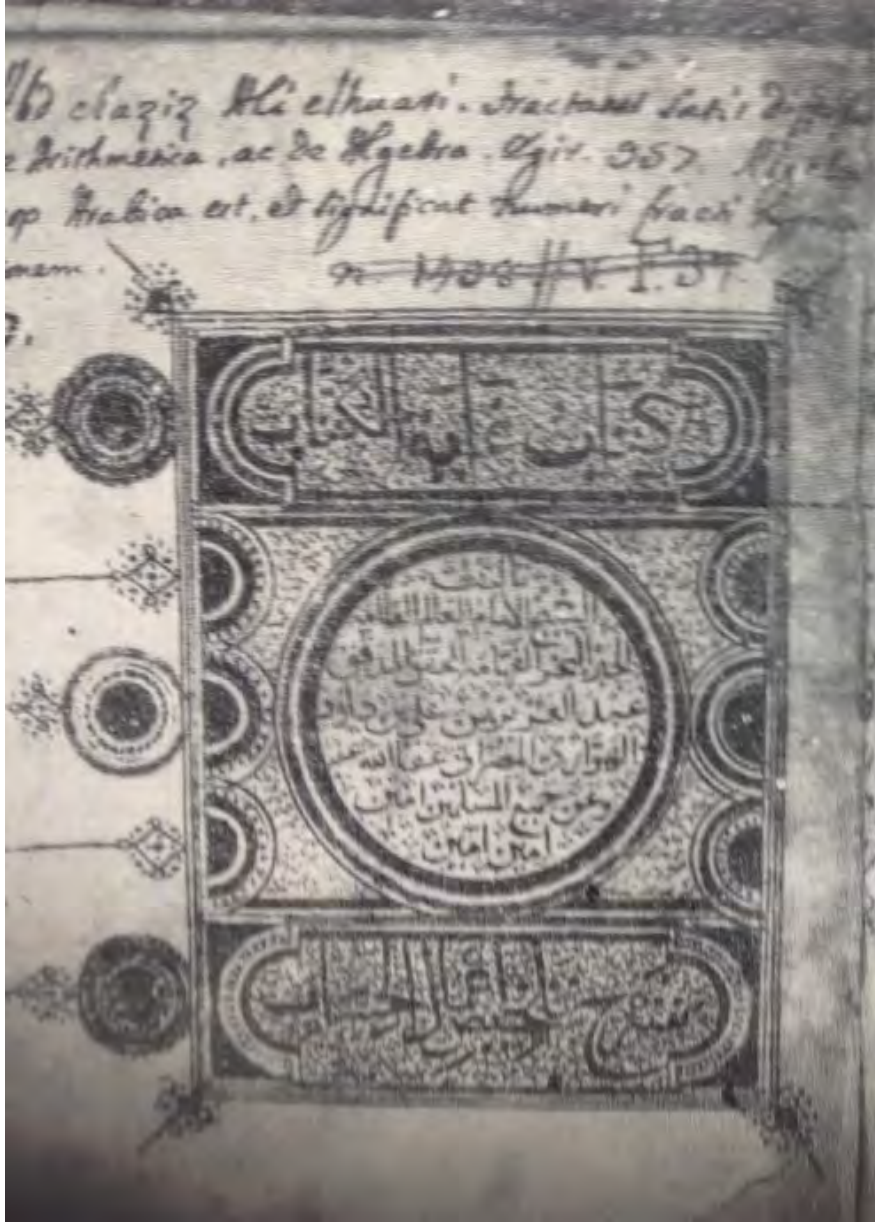 Abd elaziz Ali elhuari. Tractatus satis
Arithmetica, ac de Algebra. Egir. 957.
Arabica est, et significat numeri fracti
n. v. F. 37.
كتاب
تاليف
الشيخ الامام العالم العلامة
الحبر البحر الفهامة المحقق المدقق
عبد العزيز بن علي بن داود
الهواري المصراتي عفا الله عنه
وعن جميع المسلمين امين
امين امين
شرح تلخيص اعمال الحساب